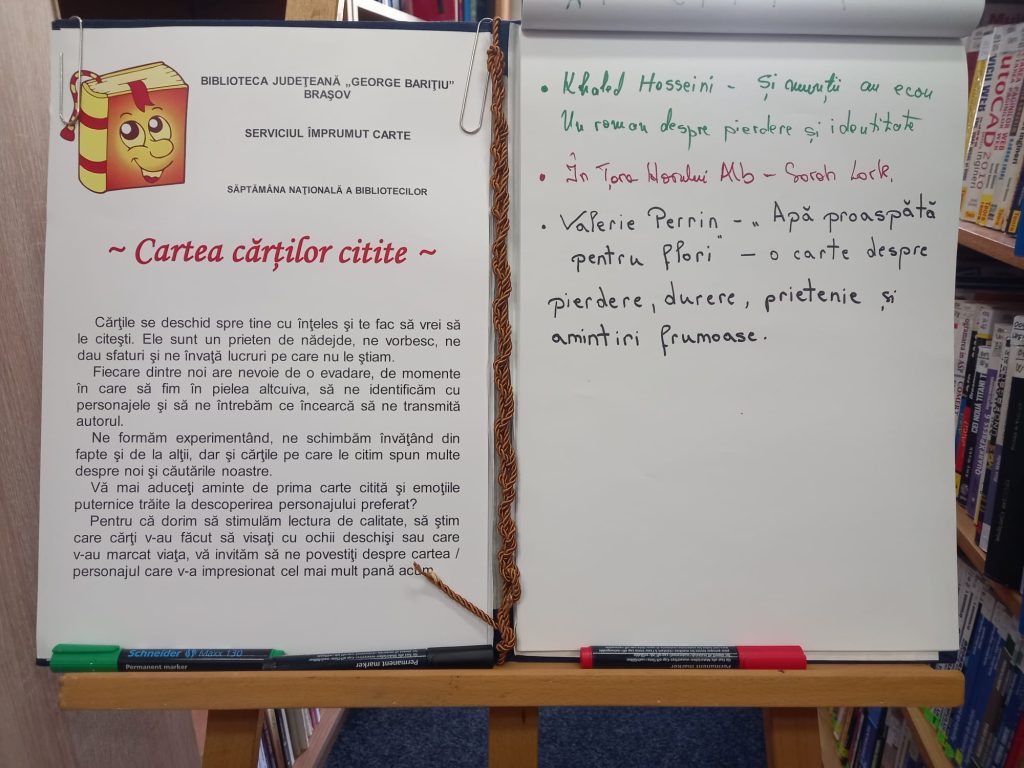 BIBLIOTECA JUDEŢEANĂ „GEORGE BARIŢIU”
BRAŞOV
SERVICIUL ÎMPRUMUT CARTE
SĂPTĂMÂNA NAŢIONALĂ A BIBLIOTECILOR
~ Cartea cărţilor citite ~
Cărţile se deschid spre tine cu înţeles şi te fac să vrei să
le citeşti. Ele sunt un prieten de nădejde, ne vorbesc, ne
dau sfaturi şi ne învaţă lucruri pe care nu le ştiam.
Fiecare dintre noi are nevoie de o evadare, de momente
în care să fim în pielea altcuiva, să ne identificăm cu
personajele şi să ne întrebăm ce încearcă să ne transmită
autorul.
Ne formăm experimentând, ne schimbăm învăţând din
fapte şi de la alţii, dar şi cărţile pe care le citim spun multe
despre noi şi căutările noastre.
Vă mai aduceţi aminte de prima carte citită şi emoţiile
puternice trăite la descoperirea personajului preferat?
Pentru că dorim să stimulăm lectura de calitate, să ştim
care cărţi v-au făcut să visaţi cu ochii deschişi sau care
v-au marcat viaţa, vă invităm să ne povestiţi despre cartea /
personajul care v-a impresionat cel mai mult pană acum
• Khaled Hosseini - și munții au ecou
Un roman despre pierdere și identitate
• În Țara Norului Alb - Sarah Lark.
• Valerie Perrin - „Apă proaspătă
pentru flori" - o carte despre
pierdere, durere, prietenie și
amintiri frumoase.
Schneider Maxx 130
Permanent marker
Permanent marker
Permanent marker
AUTOCAD 2010